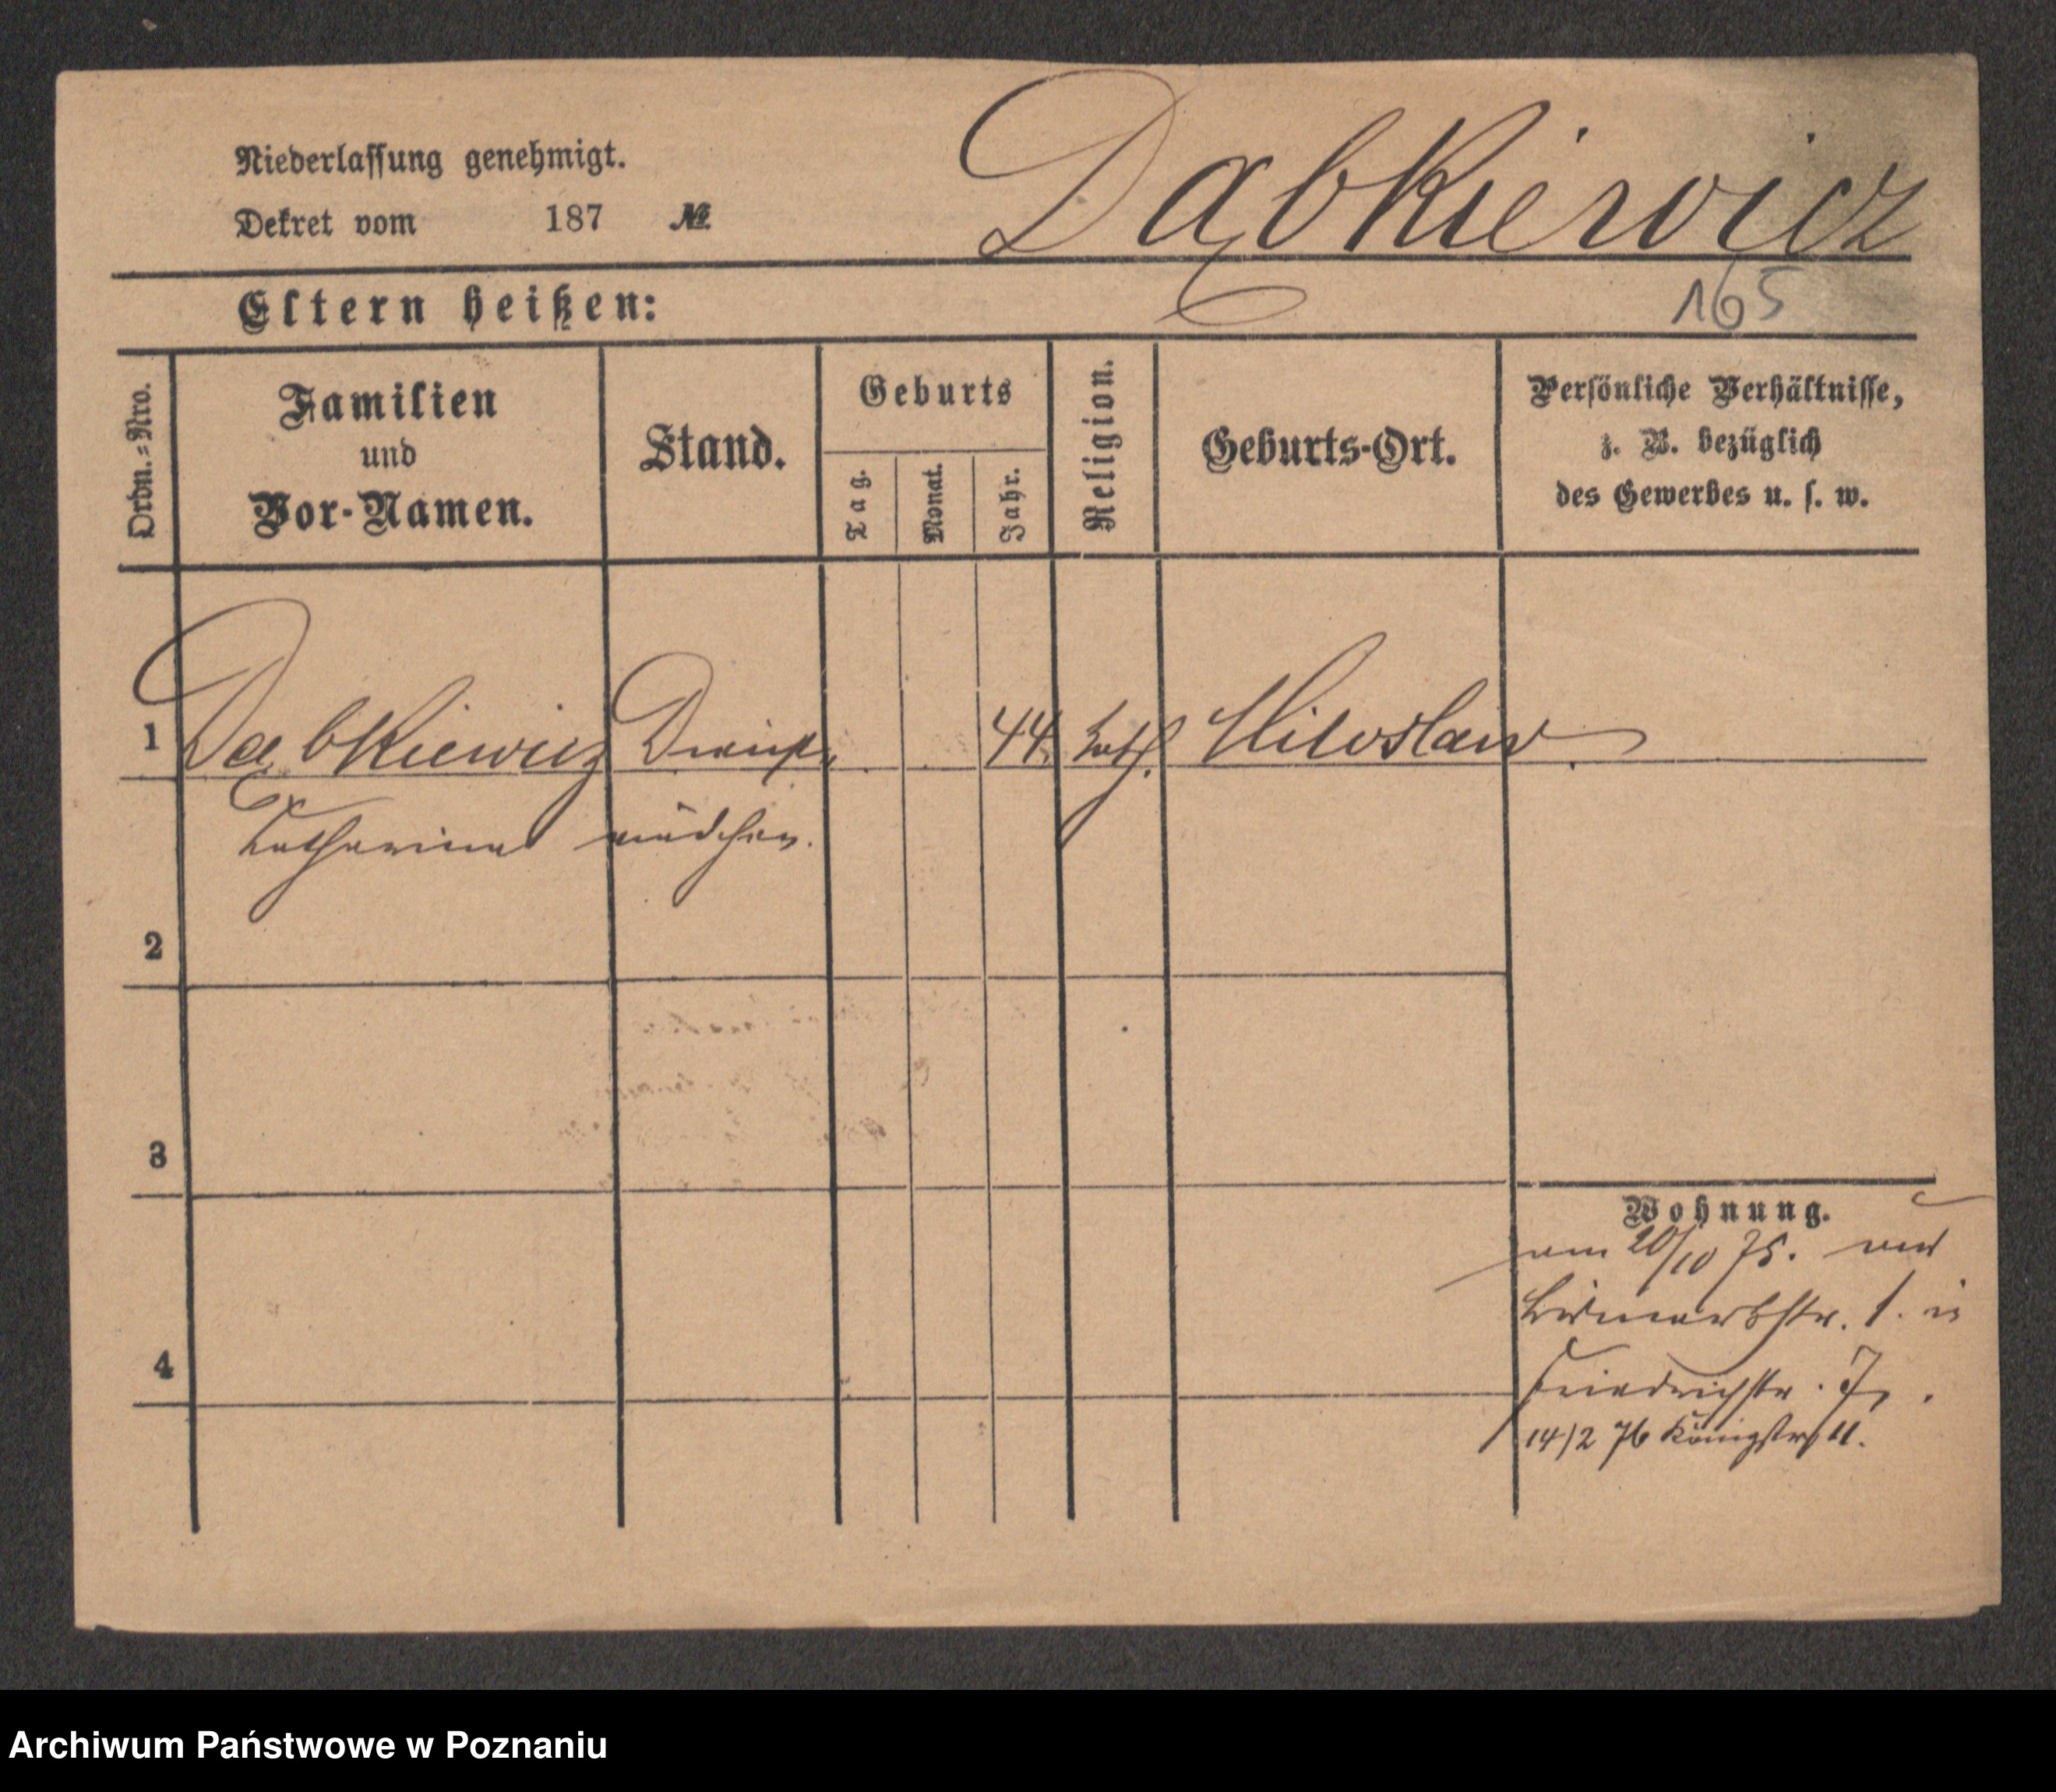 Niederlassung genehmigt.
Dąbkiewicz
Dekret vom 187 №
Eltern heißen:
165
Ordn.=Nro.
Familien
und
Vor-Namen.
Stand.
Geburts
Tag.
Monat.
Jahr.
Religion.
Geburts-Ort.
Persönliche Verhältnisse,
z. B. bezüglich
des Gewerbes u. s. w.
1 Dąbkiewicz Dienst- 44. kath. Miloslaw
Katharina mädchen.
2
3
4
Wohnung.
am 20/10 75. von
Bismarkstr. 1. in
Friedrichstr. 7.
14/2 76 Königstr. 11.
Archiwum Państwowe w Poznaniu